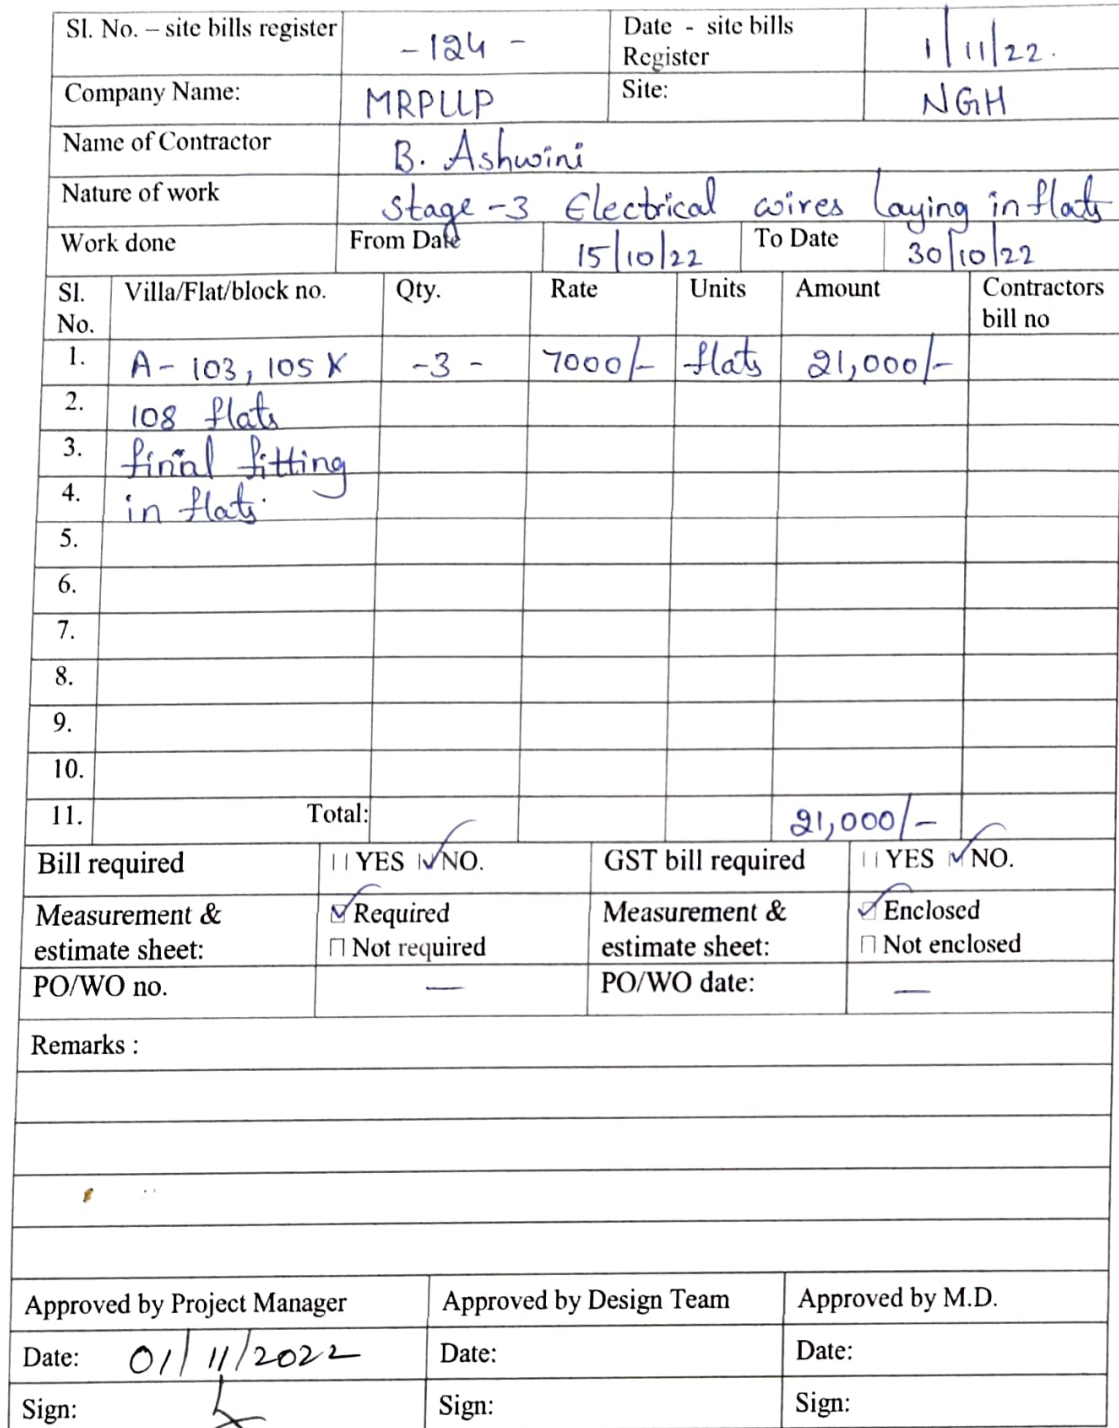 Sl. No. – site bills register -124 - Date - site bills Register 1/11/22.
Company Name: MRPLLP Site: NGH
Name of Contractor B. Ashwini
Nature of work Stage-3 Electrical wires laying in flats
Work done From Date 15/10/22 To Date 30/10/22
Sl. No. Villa/Flat/block no. Qty. Rate Units Amount Contractors bill no
1. A- 103, 105 & -3 - 7000/- flats 21,000/-
2. 108 flats
3. final fitting
4. in flats.
5.
6.
7.
8.
9.
10.
11. Total: 21,000/-
Bill required YES NO. GST bill required YES NO.
Measurement & estimate sheet: Required Measurement & estimate sheet: Enclosed
Not required Not enclosed
PO/WO no. — PO/WO date: —
Remarks :
Approved by Project Manager Approved by Design Team Approved by M.D.
Date: 01/11/2022 Date: Date:
Sign: Sign: Sign: